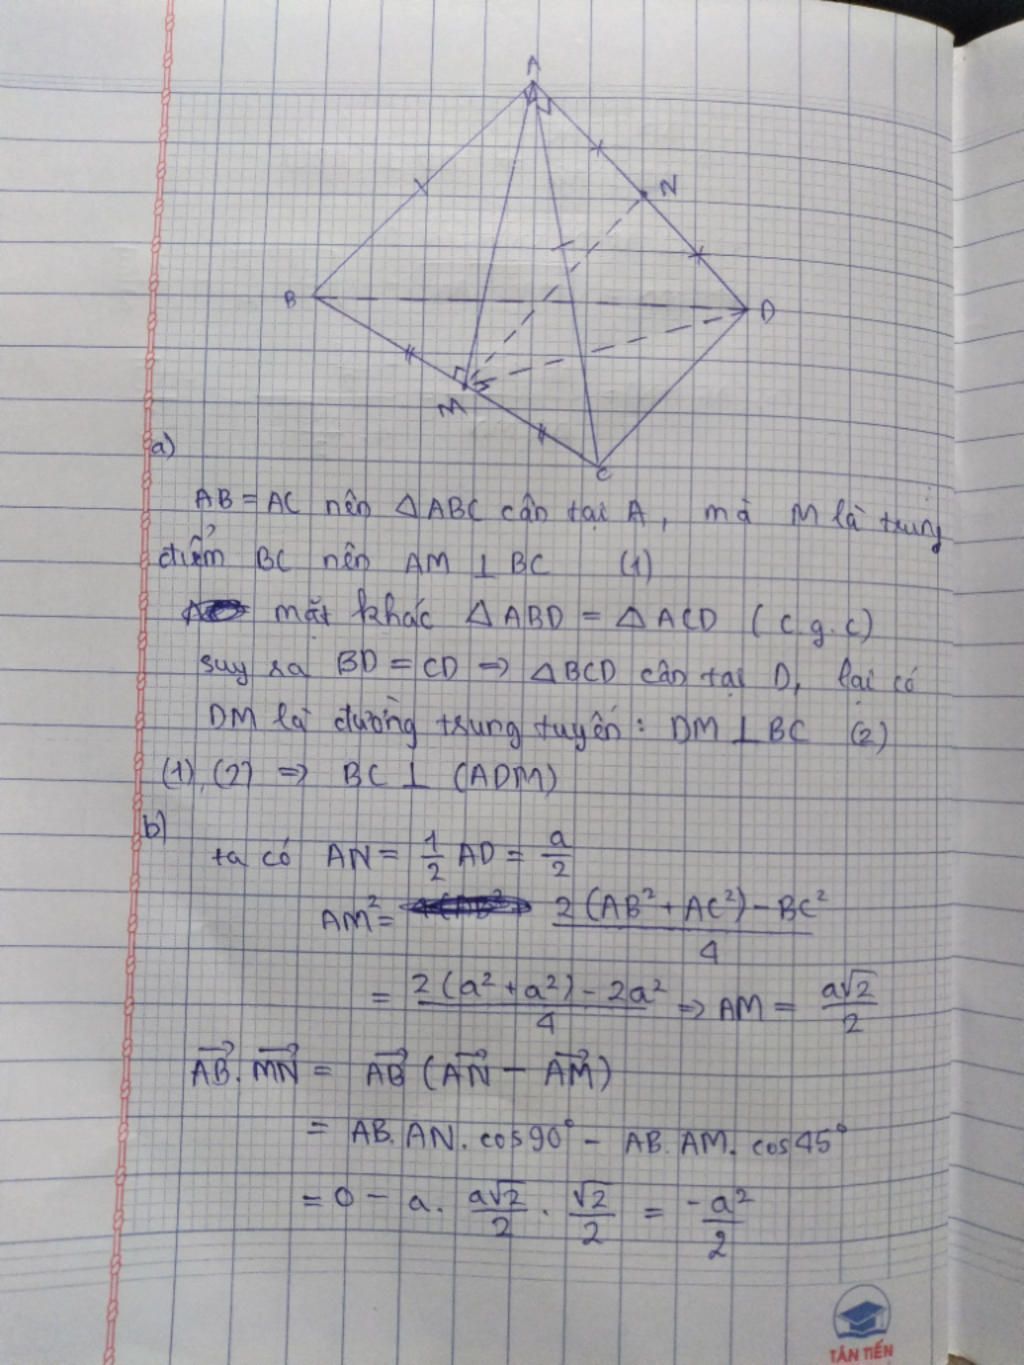 A
N
B
D
M
C
a)
AB = AC nên ΔABC cân tại A, mà M là trung
điểm BC nên AM ⊥ BC (1)
mặt khác ΔABD = ΔACD (c.g.c)
suy ra BD = CD ⇒ ΔBCD cân tại D, lại có
DM là đường trung tuyến: DM ⊥ BC (2)
(1), (2) ⇒ BC ⊥ (ADM)
b)
ta có AN = 1/2 AD = a/2
AM² = (2(AB² + AC²) - BC²)/4
= (2(a² + a²) - 2a²)/4 ⇒ AM = a√2/2
\overrightarrow{AB}.\overrightarrow{MN} = \overrightarrow{AB}(\overrightarrow{AN} - \overrightarrow{AM})
= AB.AN.cos90° - AB.AM.cos45°
= 0 - a. a√2/2 . √2/2 = -a²/2
TÂN TIẾN